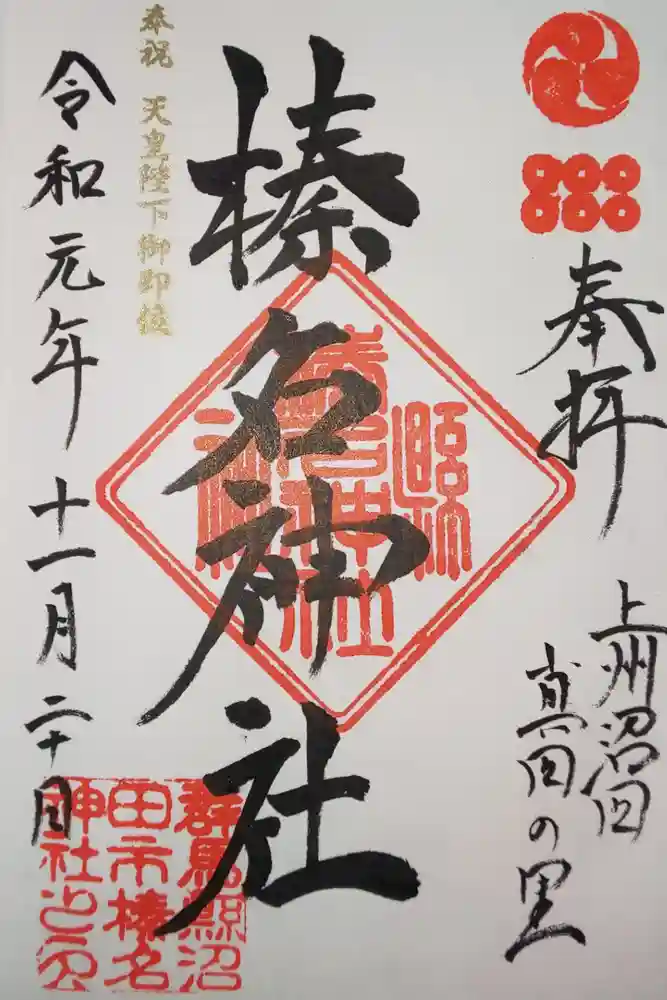 奉拝
上州沼田
真田の里
榛名神社
縣社
榛名神社
奉祝 天皇陛下御即位
令和元年 十一月 二十日
群馬縣沼
田市榛名
神社之印